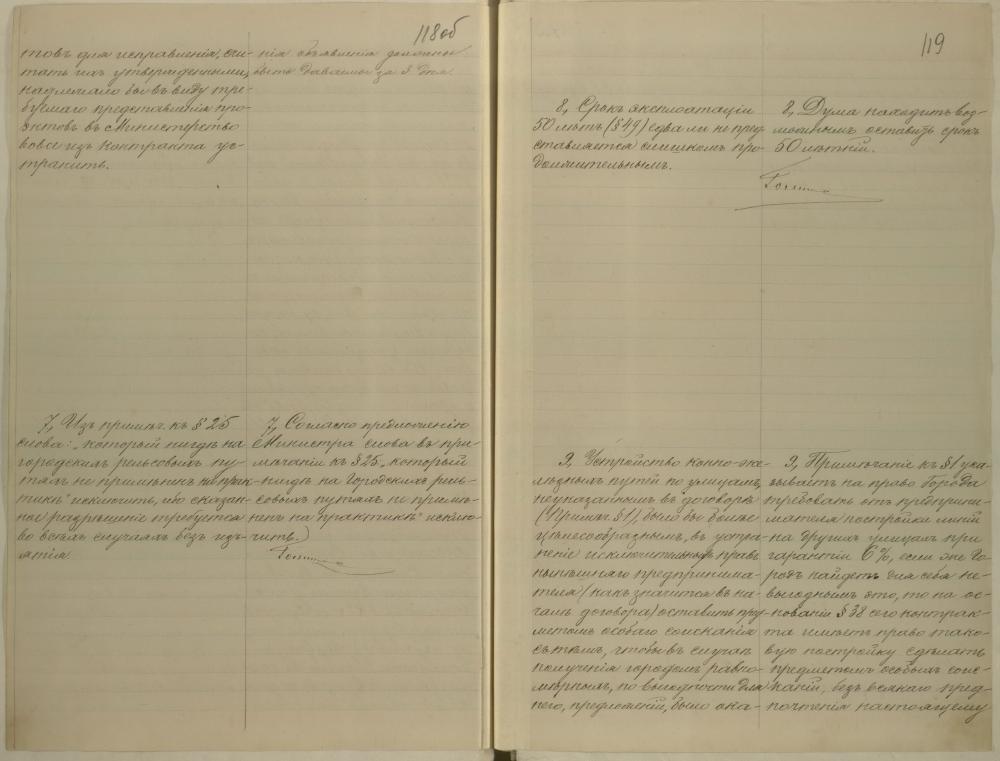 118об
товъ для исправленія, счи-
тать ихъ утвержденными,
надлежало бы въ виду тре-
буемаго представленія про-
эктовъ въ Министерство
вовсе изъ контракта ус-
транить.
нія объявленія должны
быть даваемы за 3 дня.
7, Изъ примѣч. къ § 25
слова: „который нигдѣ на
городскихъ рельсовыхъ пу-
тяхъ не примѣненъ на прак-
тикѣ" исключить, ибо сказан-
ное разрѣшеніе требуется
во всѣхъ случаяхъ безъ изъ-
ятія.
7, Согласно предложенію
Министра слова въ при-
мѣчаніи къ § 25 „который
нигдѣ на городскихъ рель-
совыхъ путяхъ не примѣ-
ненъ на практикѣ" исклю-
чить.
119
8, Срокъ эксплоатаціи
50 лѣтъ (§ 49) едва ли не пред-
ставляется слишкомъ про-
должительнымъ.
8, Дума находитъ воз-
можнымъ оставить срокъ
50 лѣтній.
9, Устройство конно-же-
лѣзныхъ путей по улицамъ,
неуказаннымъ въ договорѣ
(Примѣч. § 1), было бы болѣе
цѣлесообразнымъ, въ устра-
неніе исключительныхъ правъ
нынѣшняго предпринима-
теля (какъ значится въ на-
чалѣ договора) оставить пред-
метомъ особаго соисканія
съ тѣмъ, чтобы въ случаѣ
полученія городомъ равно-
мѣрныхъ, по выгодности для
него, предложеній, было ока-
9, Примѣчаніе къ § 1 ука-
зываетъ на право Города
требовать отъ предприни-
мателя постройки линій
на другихъ улицахъ при
гарантіи 6%, если же Го-
родъ найдетъ для себя не-
выгоднымъ это, то на ос-
нованіи § 38 сего контрак-
та имѣетъ право тако-
вую постройку сдѣлать
предметомъ особыхъ соис-
каній, безъ всякаго пред-
почтенія настоящему